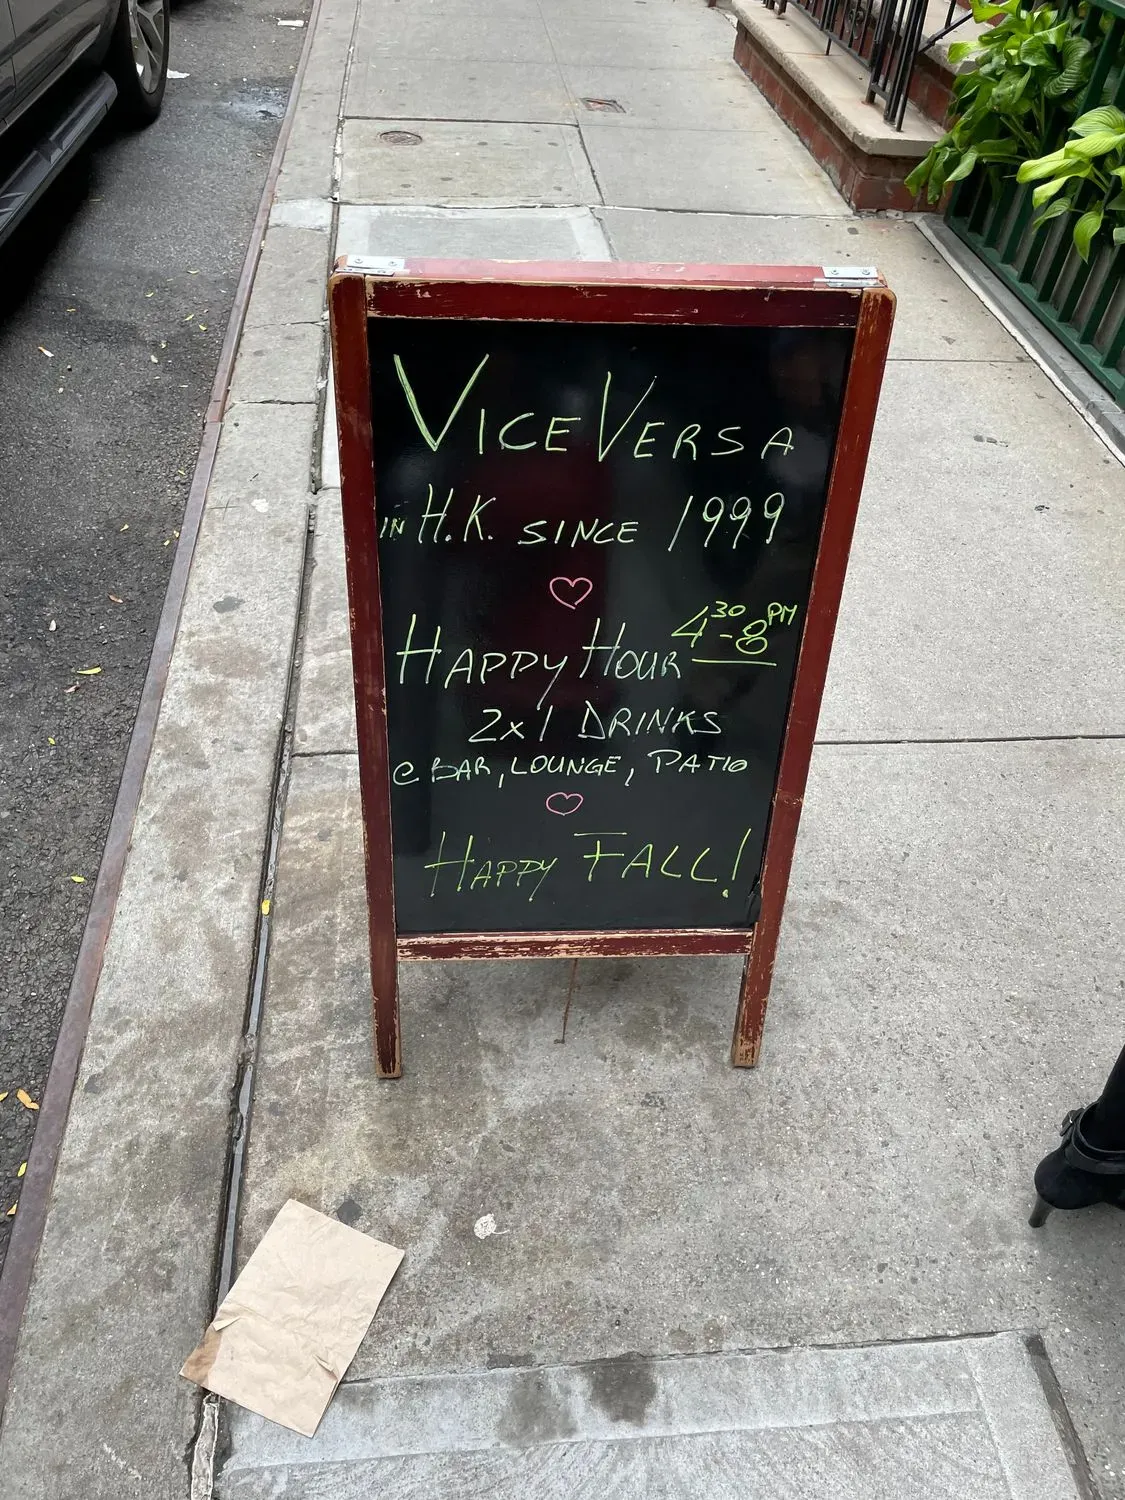 VICE VERSA
IN H.K. SINCE 1999
HAPPY HOUR 4³⁰-8ᴾᴹ
2x1 DRINKS
@ BAR, LOUNGE, PATIO
HAPPY FALL!